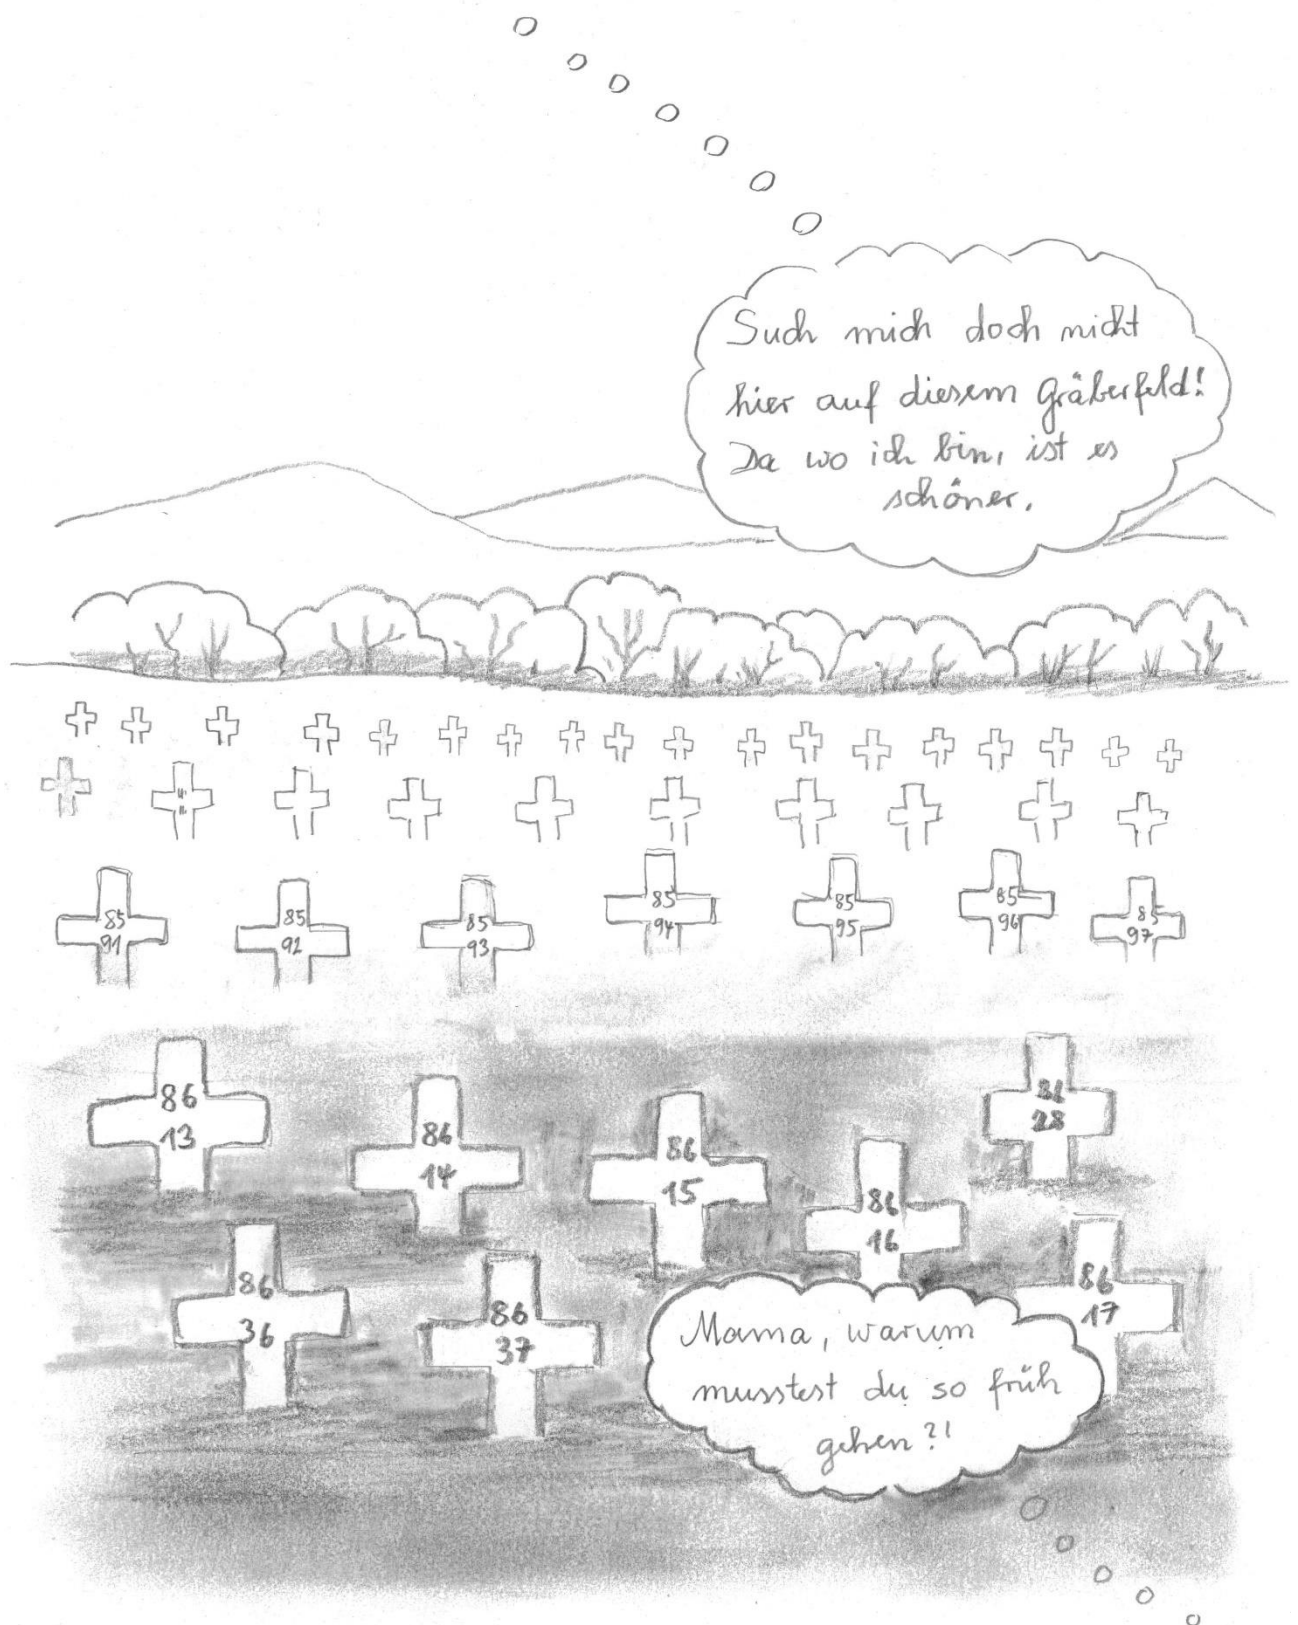 Such mich doch nicht
hier auf diesem Gräberfeld!
Da wo ich bin, ist es
schöner.
85
91
85
92
85
93
85
94
85
95
85
96
85
97
86
13
86
14
86
15
86
16
28
86
36
86
37
86
17
Mama, warum
musstest du so früh
gehen?!